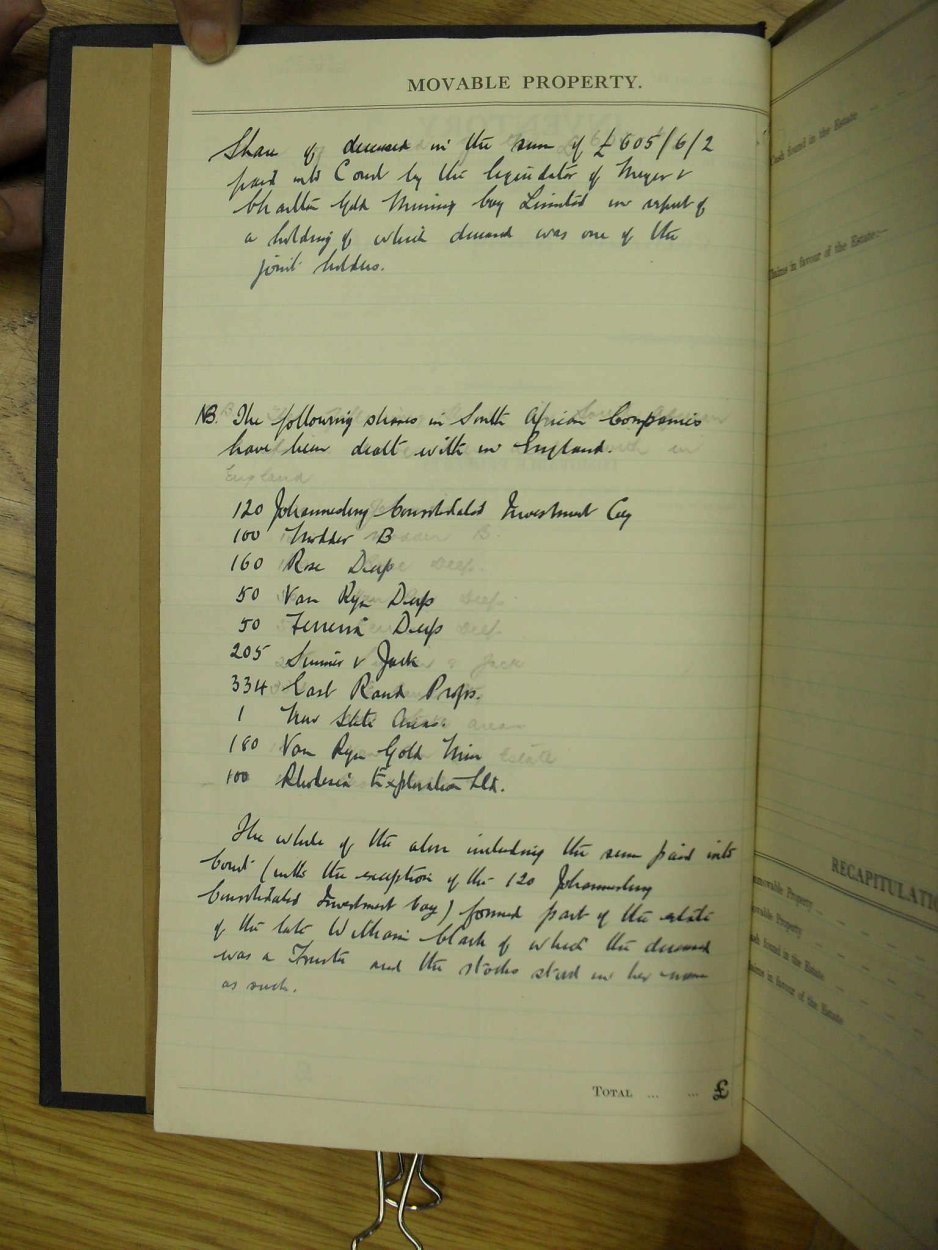 MOVABLE PROPERTY.
Share of deceased in the sum of £605/6/2
paid into Court by the liquidator of Meyer &
Charlton Gold Mining Coy Limited in respect of
a holding of which deceased was one of the
joint holders.
NB. The following shares in South African Companies
have been dealt with in England.
120 Johannesburg Consolidated Investment Coy
100 Modder B
160 Rose Deep
50 Van Ryn Deep
50 Ferreira Deep
205 Simmer & Jack
334 East Rand Props.
1 New State Areas.
180 Van Ryn Gold Mine
100 Rhodesia Exploration Ltd.
The whole of the above including the sum paid into
Court (with the exception of the 120 Johannesburg
Consolidated Investment Coy) formed part of the estate
of the late William Clark of which the deceased
was a Trustee and the stocks stood in her name
as such.
TOTAL ... ... £
Cash found in the Estate
Claims in favour of the Estate:—
RECAPITULATIO
movable Property
ovable Property
ash found in the Estate
aims in favour of the Estate